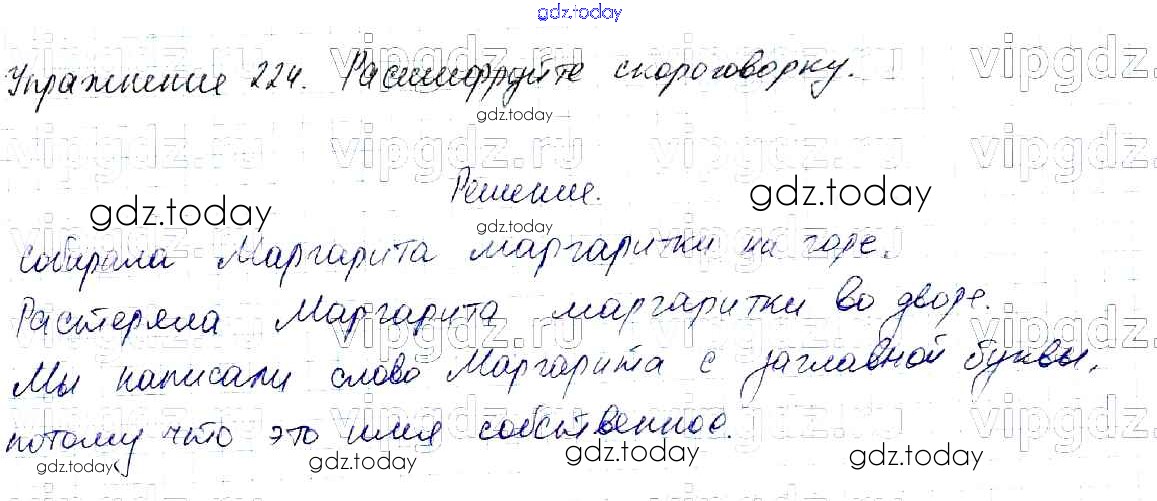 gdz.today
Упражнение 224. Расшифруйте скороговорку.
gdz.today
Решение.
gdz.today gdz.today gdz.today
собирала Маргарита маргаритки на горе.
Растеряла Маргарита маргаритки во дворе.
Мы написали слово Маргарита с заглавной буквы,
потому что это имя собственное.
gdz.today gdz.today gdz.today gdz.today
vipgdz.ru